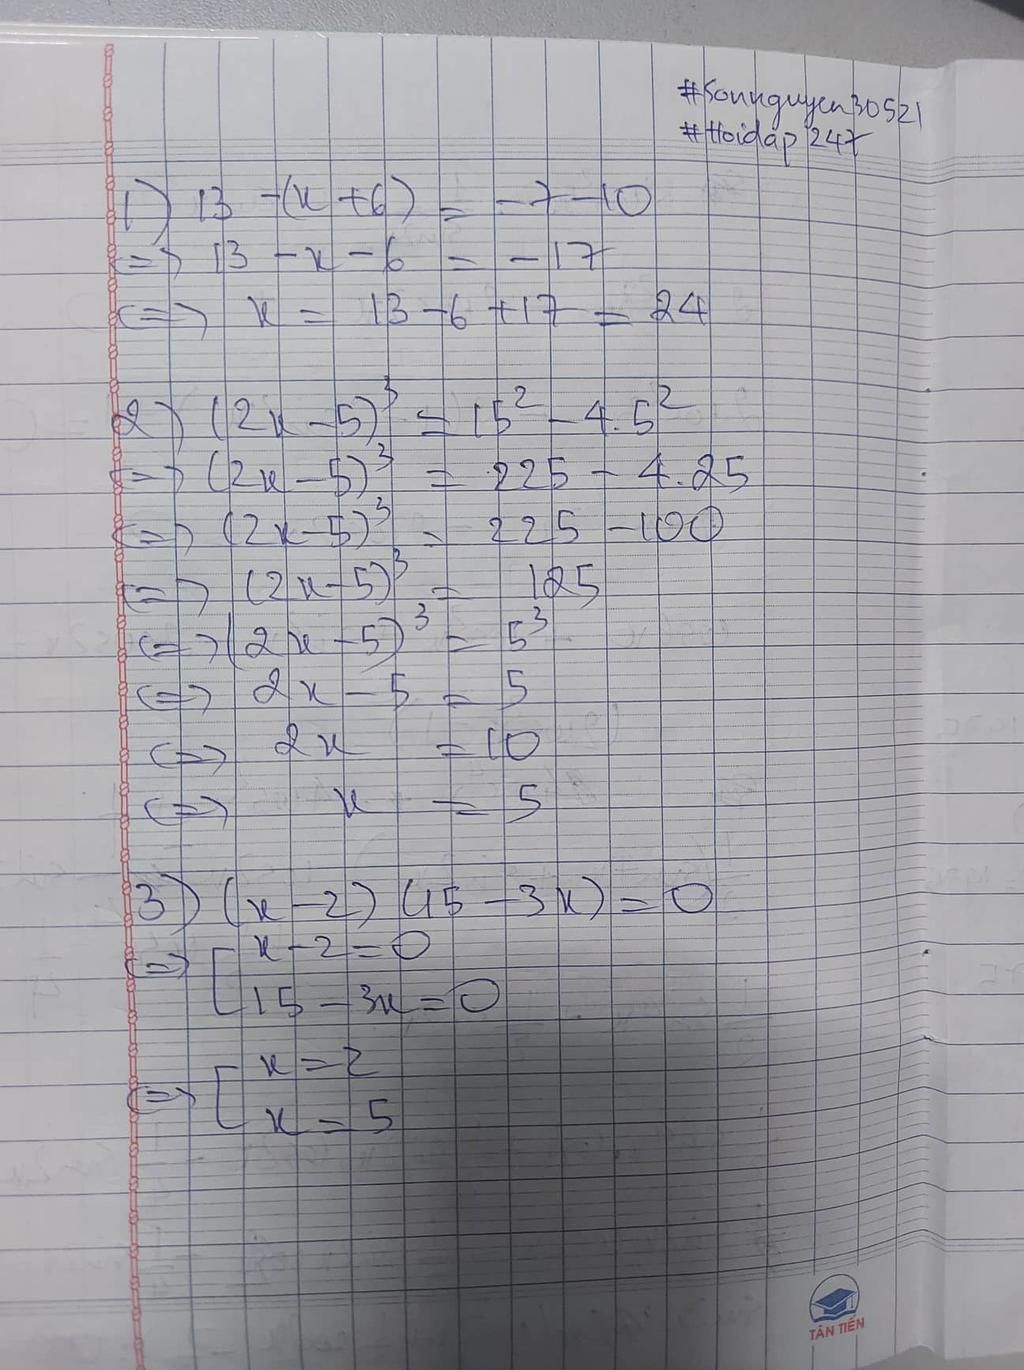 #Sonnguyen30521
#Hoidap247
1) 13 - (x + 6) = -7 - 10
<=> 13 - x - 6 = -17
<=> x = 13 - 6 + 17 = 24
2) (2x - 5)³ = 15² - 4.5²
<=> (2x - 5)³ = 225 - 4.25
<=> (2x - 5)³ = 225 - 100
<=> (2x - 5)³ = 125
<=> (2x - 5)³ = 5³
<=> 2x - 5 = 5
<=> 2x = 10
<=> x = 5
3) (x - 2) (15 - 3x) = 0
<=> [ x - 2 = 0
15 - 3x = 0
<=> [ x = 2
x = 5
TÂN TIẾN